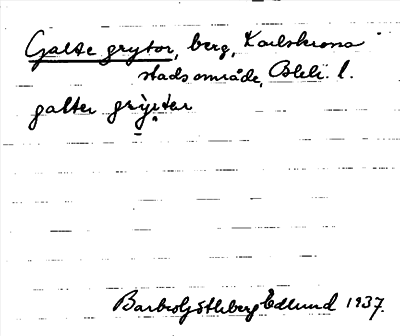 Galte grytor, berg, Karlskrona
stadsområde, Blek. l.
galter grytar
Barbro Götlberg Edlund 1937.